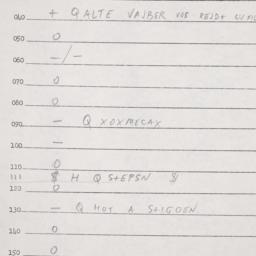 040 + Q ALTE VAJBER VOS REJDT
050 O
060 - / -
070 O
080 O
090 - Q XOXMECAX
100 -
110 O
111 $ H Q S+EPSN $
120 O
130 - Q HOT A S+IGOEN
140 O
150 O